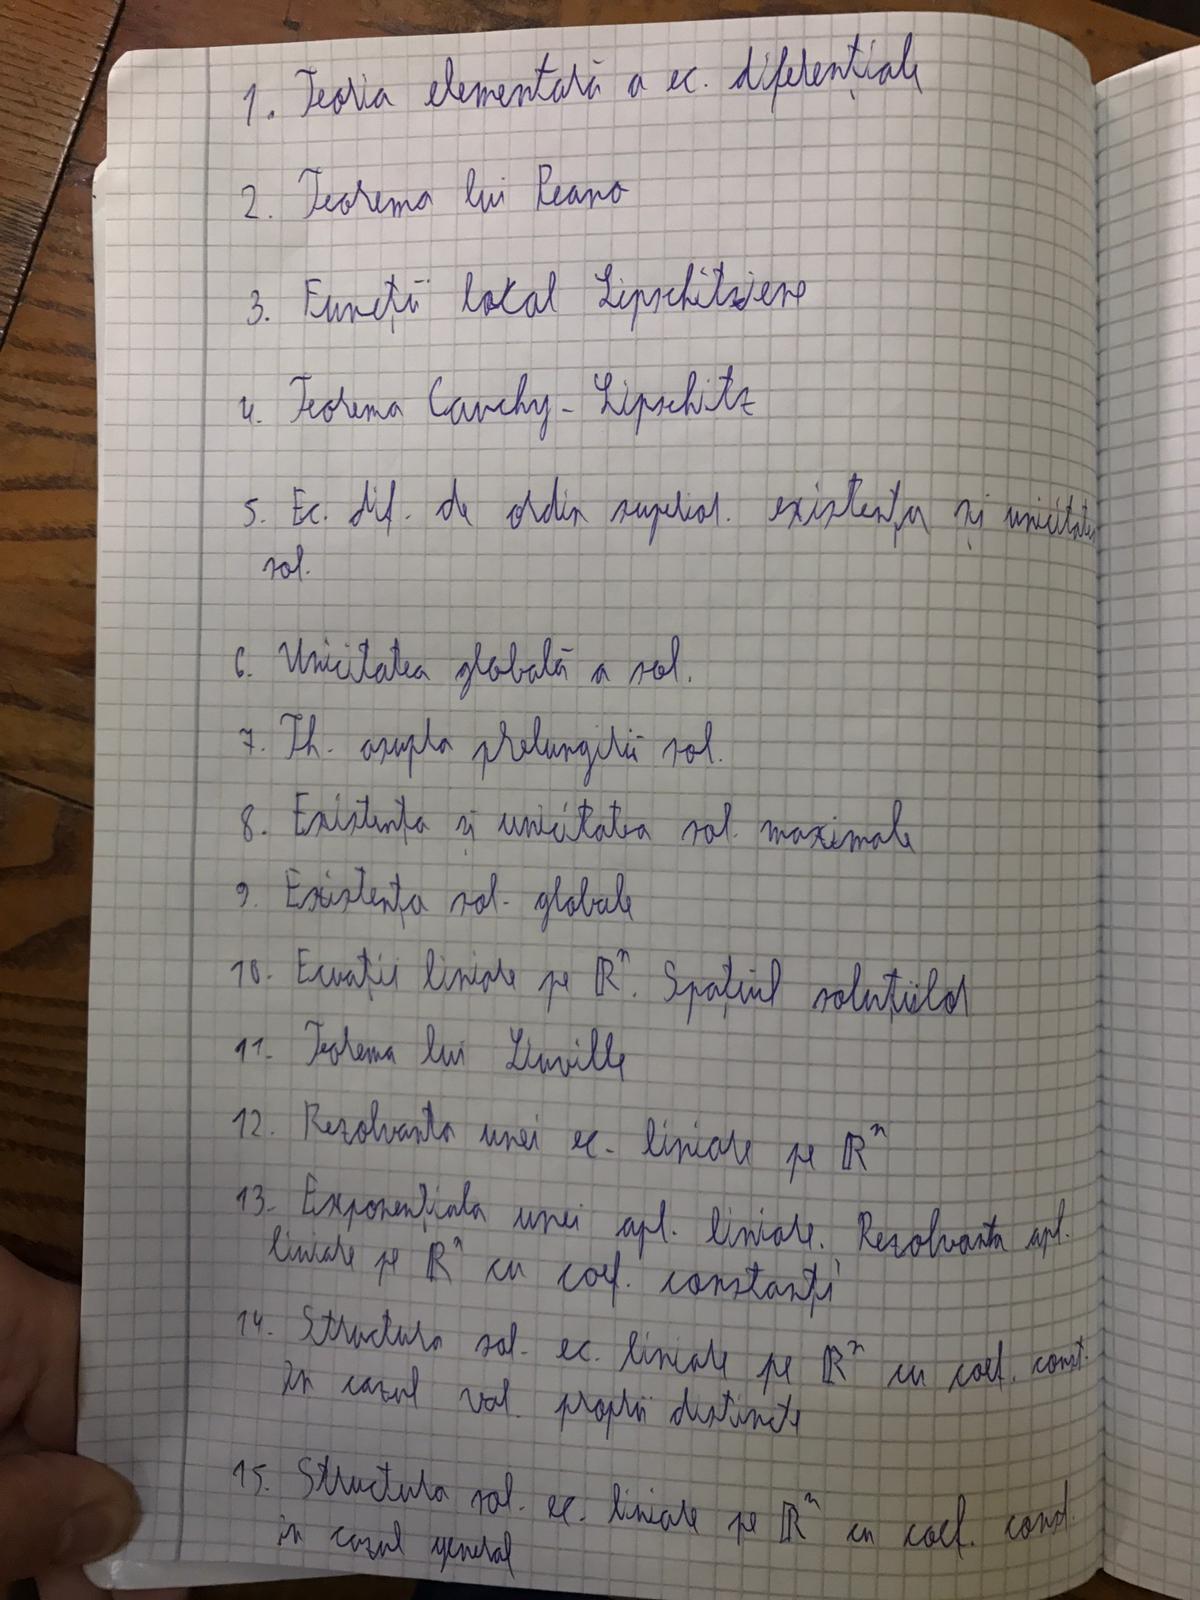 1. Teoria elementară a ec. diferențiale
2. Teorema lui Peano
3. Funcții local Lipschitziene
4. Teorema Cauchy-Lipschitz
5. Ec. dif. de ordin superior. existența și unicitatea
sol.
6. Unicitatea globală a sol.
7. Th. asupra prelungirii sol.
8. Existența și unicitatea sol. maximale
9. Existența sol. globale
10. Ecuații liniare pe ℝⁿ. Spațiul soluțiilor
11. Teorema lui Liuville
12. Rezolvanta unei ec. liniare pe ℝⁿ
13. Exponențiala unei apl. liniare. Rezolvanta apl.
liniare pe ℝⁿ cu coef. constanți
14. Structura sol. ec. liniare pe ℝⁿ cu coef. const.
în cazul val. proprii distincte
15. Structura sol. ec. liniare pe ℝⁿ cu coef. const.
în cazul general